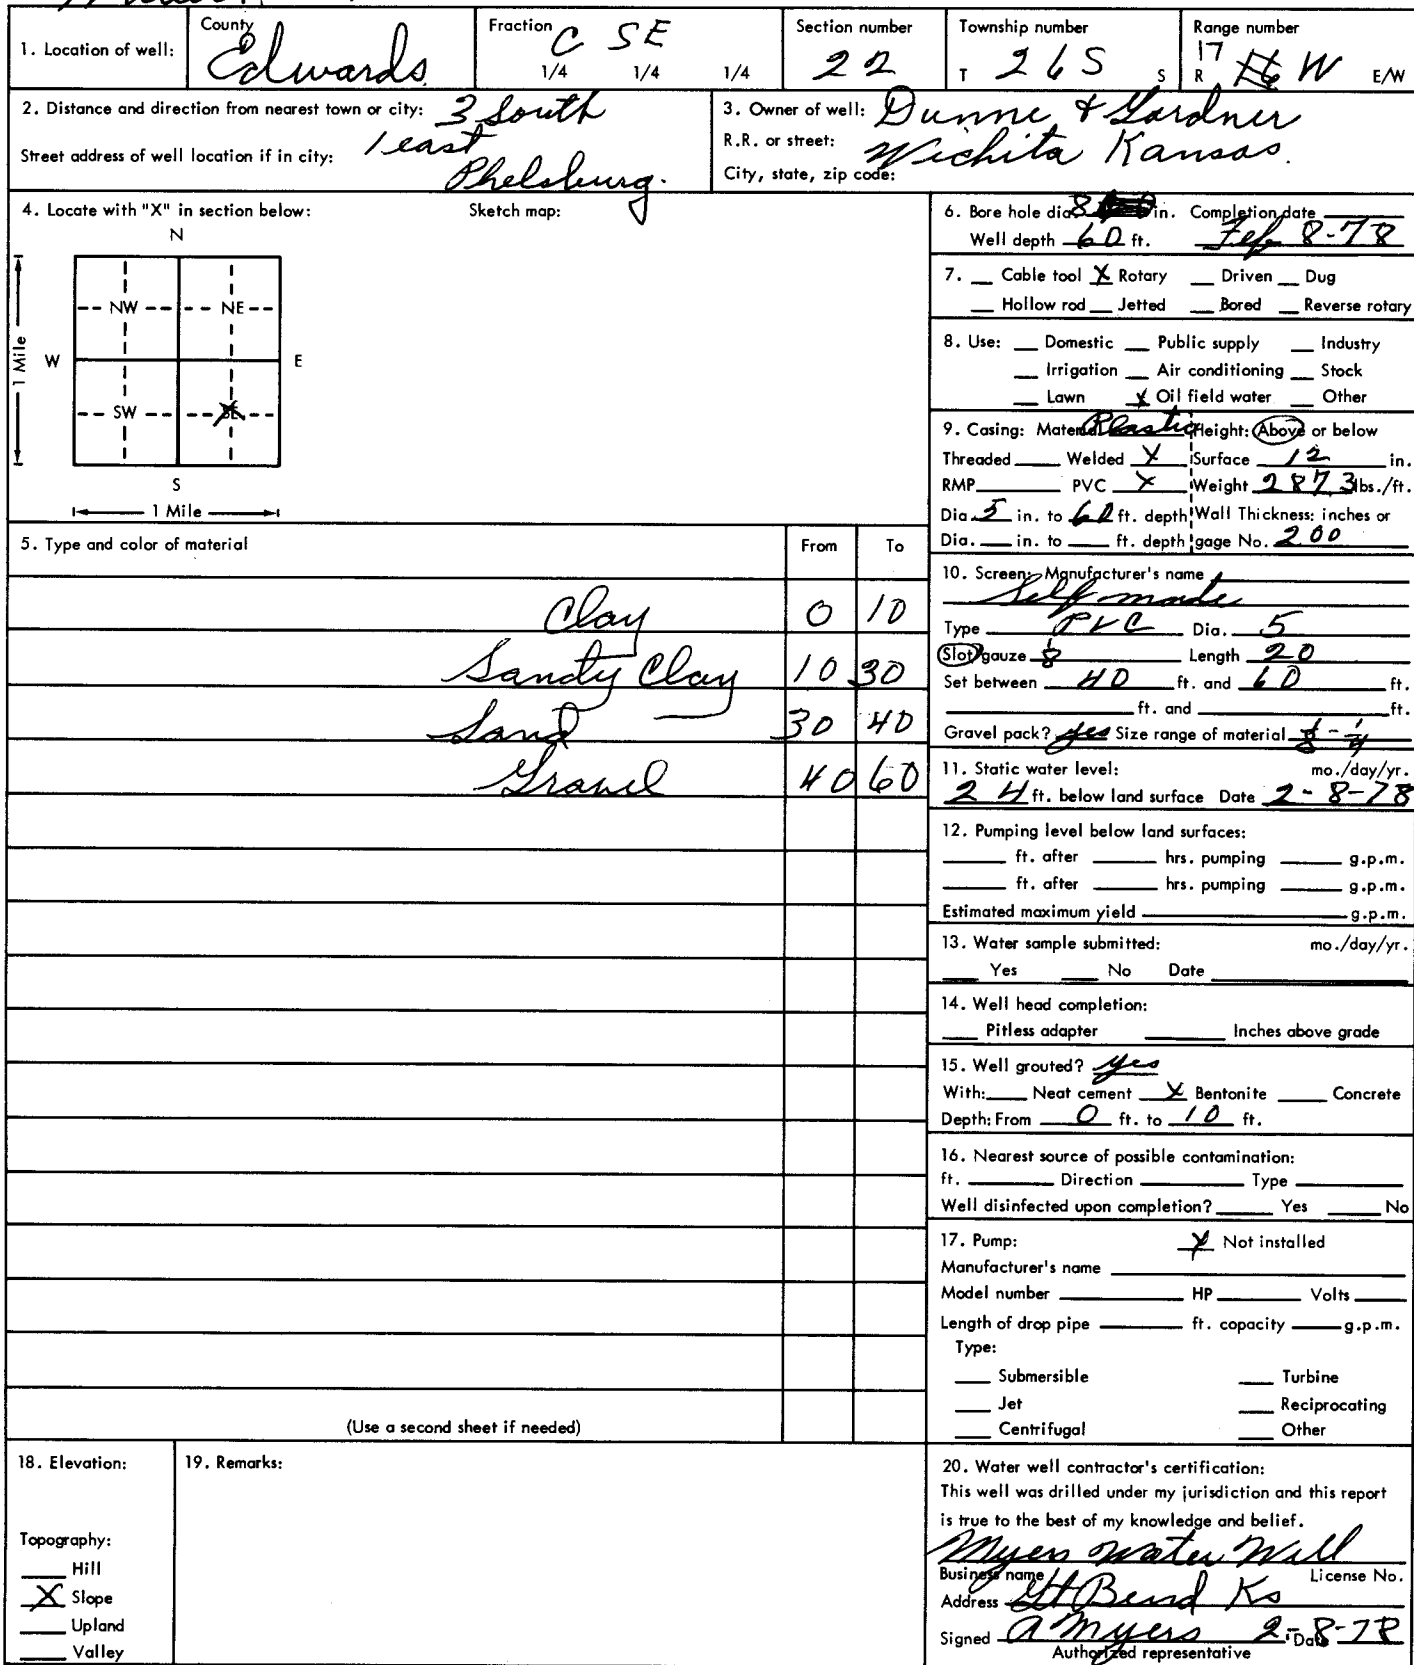 1. Location of well: County Edwards Fraction C SE 1/4 1/4 1/4 Section number 22 Township number T 26S S Range number 17 R W E/W
2. Distance and direction from nearest town or city: 3 South
1 east
Street address of well location if in city:
Phelsburg.
3. Owner of well: Dunne & Gardner
R.R. or street: Wichita Kansas.
City, state, zip code:
4. Locate with "X" in section below: Sketch map:
N
NW NE
W E
1 Mile
SW SE
S
1 Mile
5. Type and color of material From To
Clay 0 10
Sandy Clay 10 30
Sand 30 40
Gravel 40 60
(Use a second sheet if needed)
6. Bore hole dia. 8 in. Completion date
Well depth 60 ft. Feb 8-78
7. Cable tool X Rotary Driven Dug
Hollow rod Jetted Bored Reverse rotary
8. Use: Domestic Public supply Industry
Irrigation Air conditioning Stock
Lawn X Oil field water Other
9. Casing: Material Plastic Height: Above or below
Threaded Welded X Surface 12 in.
RMP PVC X Weight 2873 lbs./ft.
Dia. 5 in. to 60 ft. depth Wall Thickness: inches or
Dia. in. to ft. depth gage No. 200
10. Screen: Manufacturer's name
Self made
Type PVC Dia. 5
Slot/gauze 1/8 Length 20
Set between 40 ft. and 60 ft.
ft. and ft.
Gravel pack? yes Size range of material 1/8 - 1/4
11. Static water level: mo./day/yr.
24 ft. below land surface Date 2-8-78
12. Pumping level below land surfaces:
ft. after hrs. pumping g.p.m.
ft. after hrs. pumping g.p.m.
Estimated maximum yield g.p.m.
13. Water sample submitted: mo./day/yr.
Yes No Date
14. Well head completion:
Pitless adapter Inches above grade
15. Well grouted? yes
With: Neat cement X Bentonite Concrete
Depth: From 0 ft. to 10 ft.
16. Nearest source of possible contamination:
ft. Direction Type
Well disinfected upon completion? Yes No
17. Pump: X Not installed
Manufacturer's name
Model number HP Volts
Length of drop pipe ft. capacity g.p.m.
Type:
Submersible Turbine
Jet Reciprocating
Centrifugal Other
18. Elevation:
Topography:
Hill
X Slope
Upland
Valley
19. Remarks:
20. Water well contractor's certification:
This well was drilled under my jurisdiction and this report
is true to the best of my knowledge and belief.
Myers Water Well
Business name License No.
Address Gt Bend Ks
Signed A Myers Date 2-8-78
Authorized representative